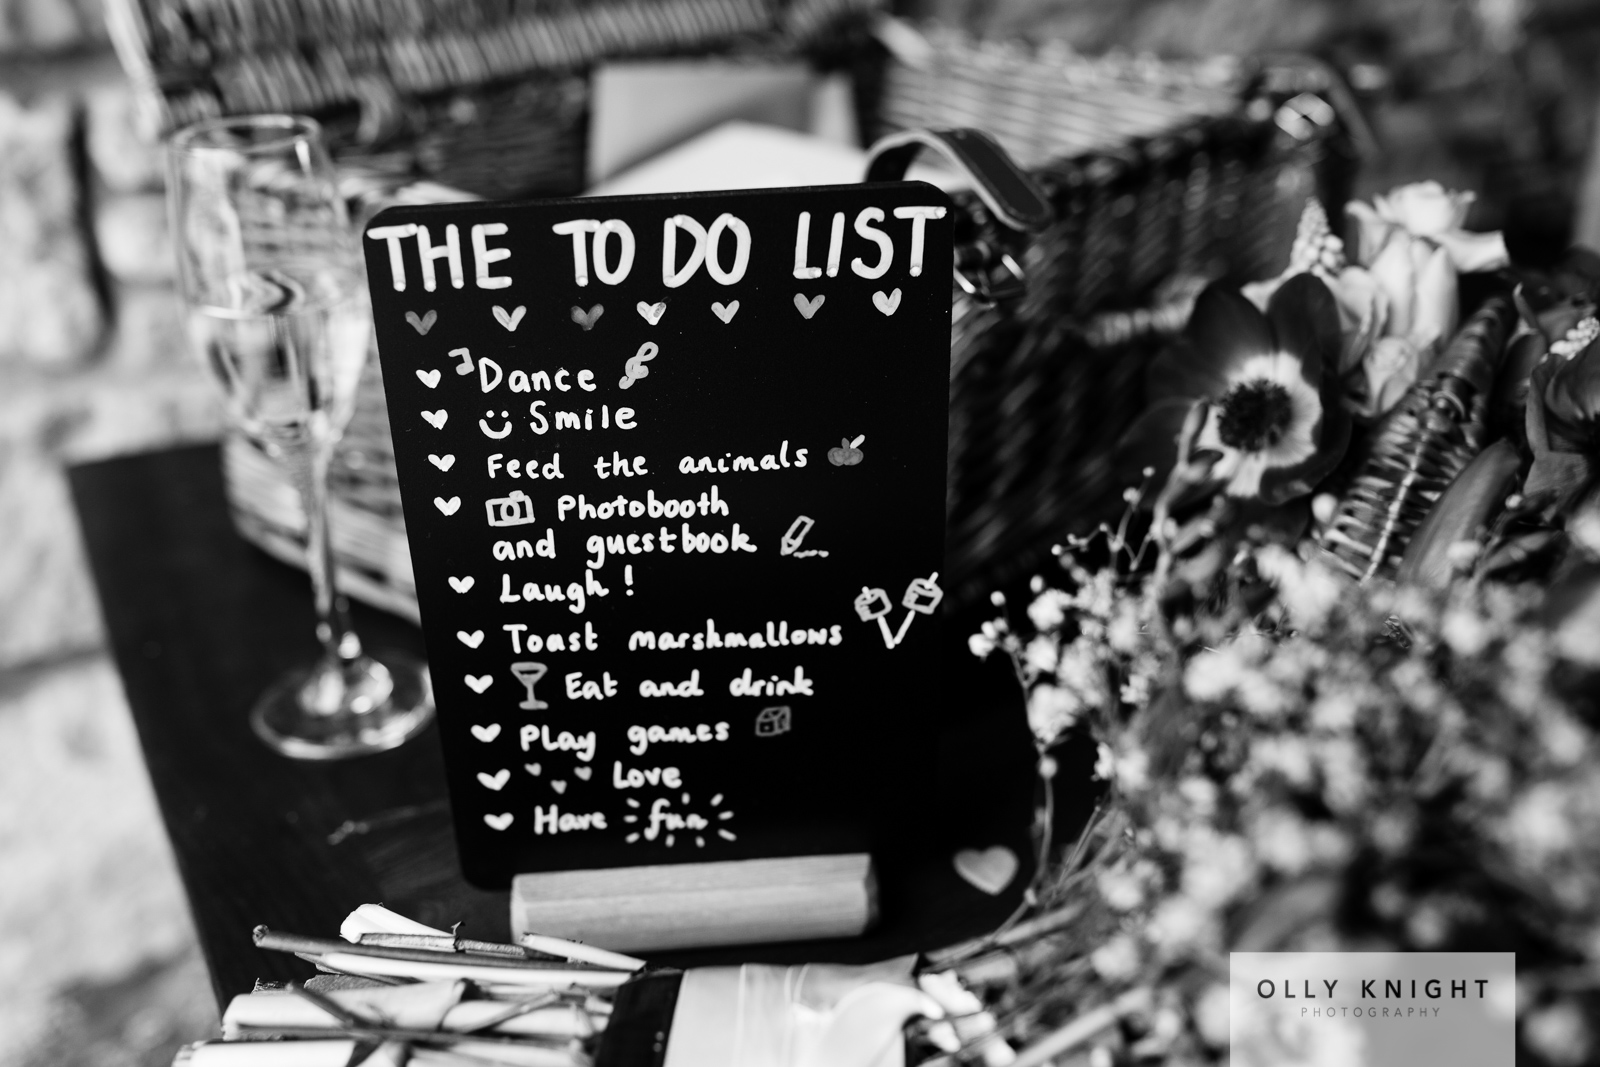 THE TO DO LIST
Dance
Smile
Feed the animals
Photobooth
and guestbook
Laugh!
Toast marshmallows
Eat and drink
Play games
Love
Have fun
OLLY KNIGHT
PHOTOGRAPHY